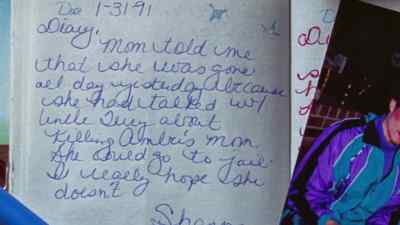 Dec 1-31-91
Diary,
Mom told me
that she was gone
all day yesterday because
she had talked w/
Uncle Terry about
Killing Amber's mom.
She could go to jail.
I really hope she
doesn't
Shanna